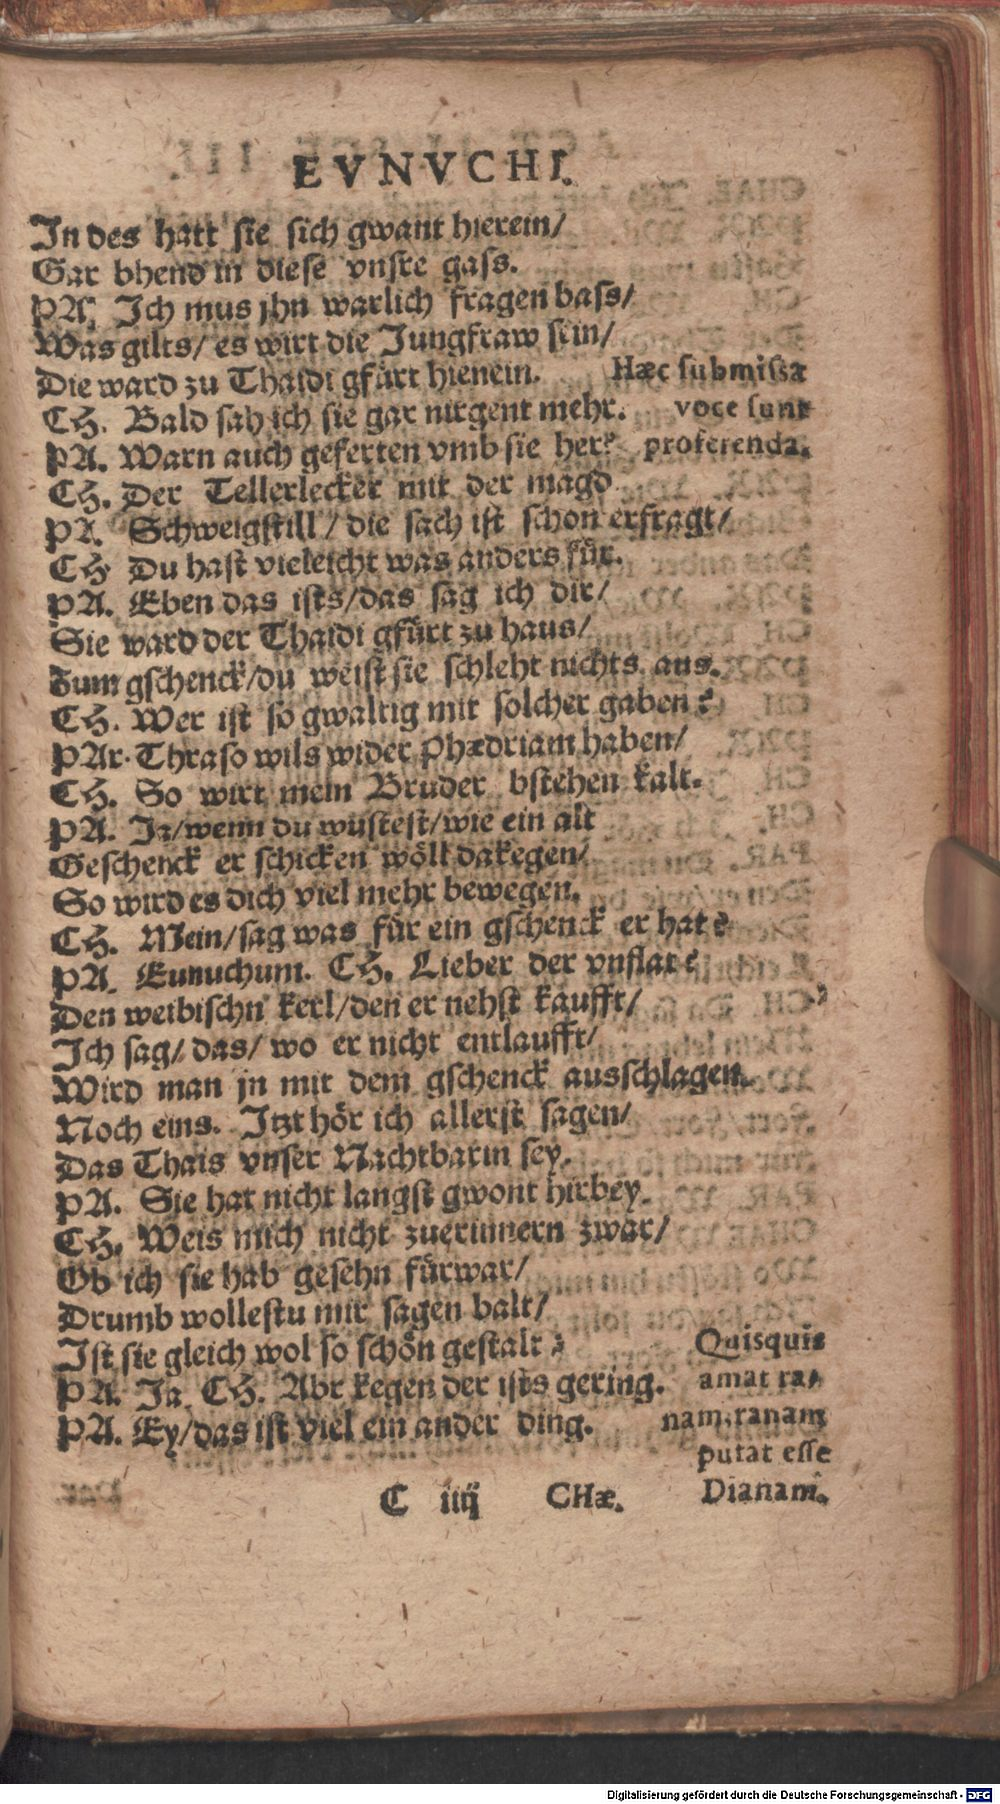 EVNVCHI.
In des hatt sie sich gwant hierein/
Gar bhend in diese vnsre gass.
PA. Ich mus jhn warlich fragen bass/
Was gilts/ es wirt die Jungfraw sein/
Die ward zu Thaidi gfürt hienein.
Hæc submissa
CH. Bald sah ich sie gar nirgent mehr.
voce sunt
PA. Warn auch geferten vmb sie her?
proferenda.
CH. Der Tellerlecker mit der magd
PA. Schweigstill/ die sach ist schon erfragt/
CH Du hast vieleicht was anders für.
PA. Eben das ists/das sag ich dir/
Sie ward der Thaidi gfürt zu haus/
Zum gschenck/du weist sie schleht nichts aus.
CH. Wer ist so gwaltig mit solcher gaben?
PAr. Thraso wils wider Phædriam haben/
CH. So wirt mein Bruder bstehen kalt.
PA. Ja/wenn du wüstest/wie ein alt
Geschenck er schicken wöll dakegen/
So wird es dich viel mehr bewegen.
CH. Mein/sag was für ein gschenck er hat?
PA. Eunuchum. CH. Lieber der vnflat?
Den weibischn kerl/den er nehst kaufft/
Ich sag/ das/ wo er nicht entlaufft/
Wird man jn mit dem gschenck ausschlagen.
Noch eins. Itzt hör ich allerst sagen/
Das Thais vnser Nachtbarin sey.
PA. Sie hat nicht langst gwont hirbey.
CH. Weis mich nicht zuerinnern zwar/
Ob ich sie hab gesehn fürwar/
Drumb wollestu mir sagen balt/
Ist sie gleich wol so schön gestalt?
PA. Ja. CH. Abr kegen der ists gering.
PA. Ey/das ist viel ein ander ding.
Quisquis
amat ra/
nam, ranam
putat esse
Dianam.
C iiij
CHæ.
Digitalisierung gefördert durch die Deutsche Forschungsgemeinschaft - DFG